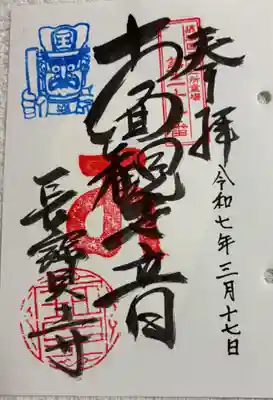 奉拝
令和七年三月十七日
十一面観世音
長寶寺
国